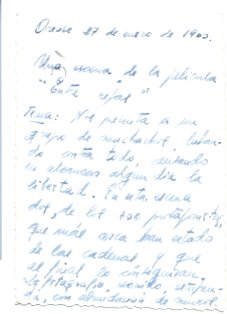 27 de enero de 1960.
Una escena de la película
"Entre rejas"
Tema: Nos presenta es un
grupo de muchachos, luchan-
do contra todo, pensando
en alcanzar algún día la
libertad. En esta escena
dos, de los
que más cerca han estado
de las cadenas, y que
al final lo consiguieron.
La fotografía, sonido, estupen-
da, con abundancia de